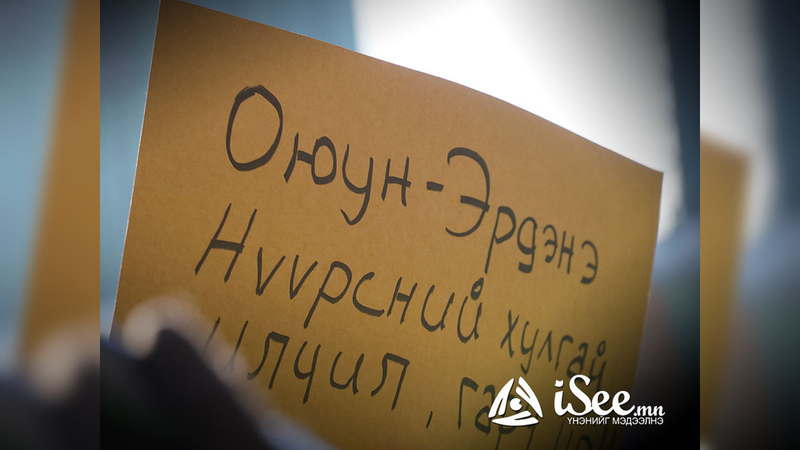 Оюун-Эрдэнэ
Нvvрсний хулгай
илчил,
iSee.mn
ҮНЭНИЙГ МЭДЭЭЛНЭ